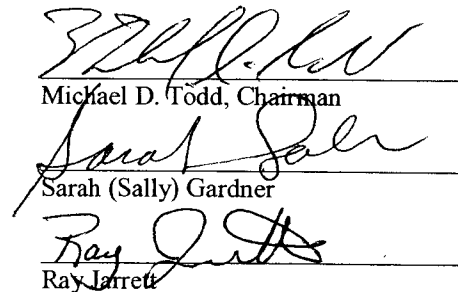 Michael D. Todd, Chairman
Sarah
Sarah (Sally) Gardner
Ray Jarrett
Ray Jarrett